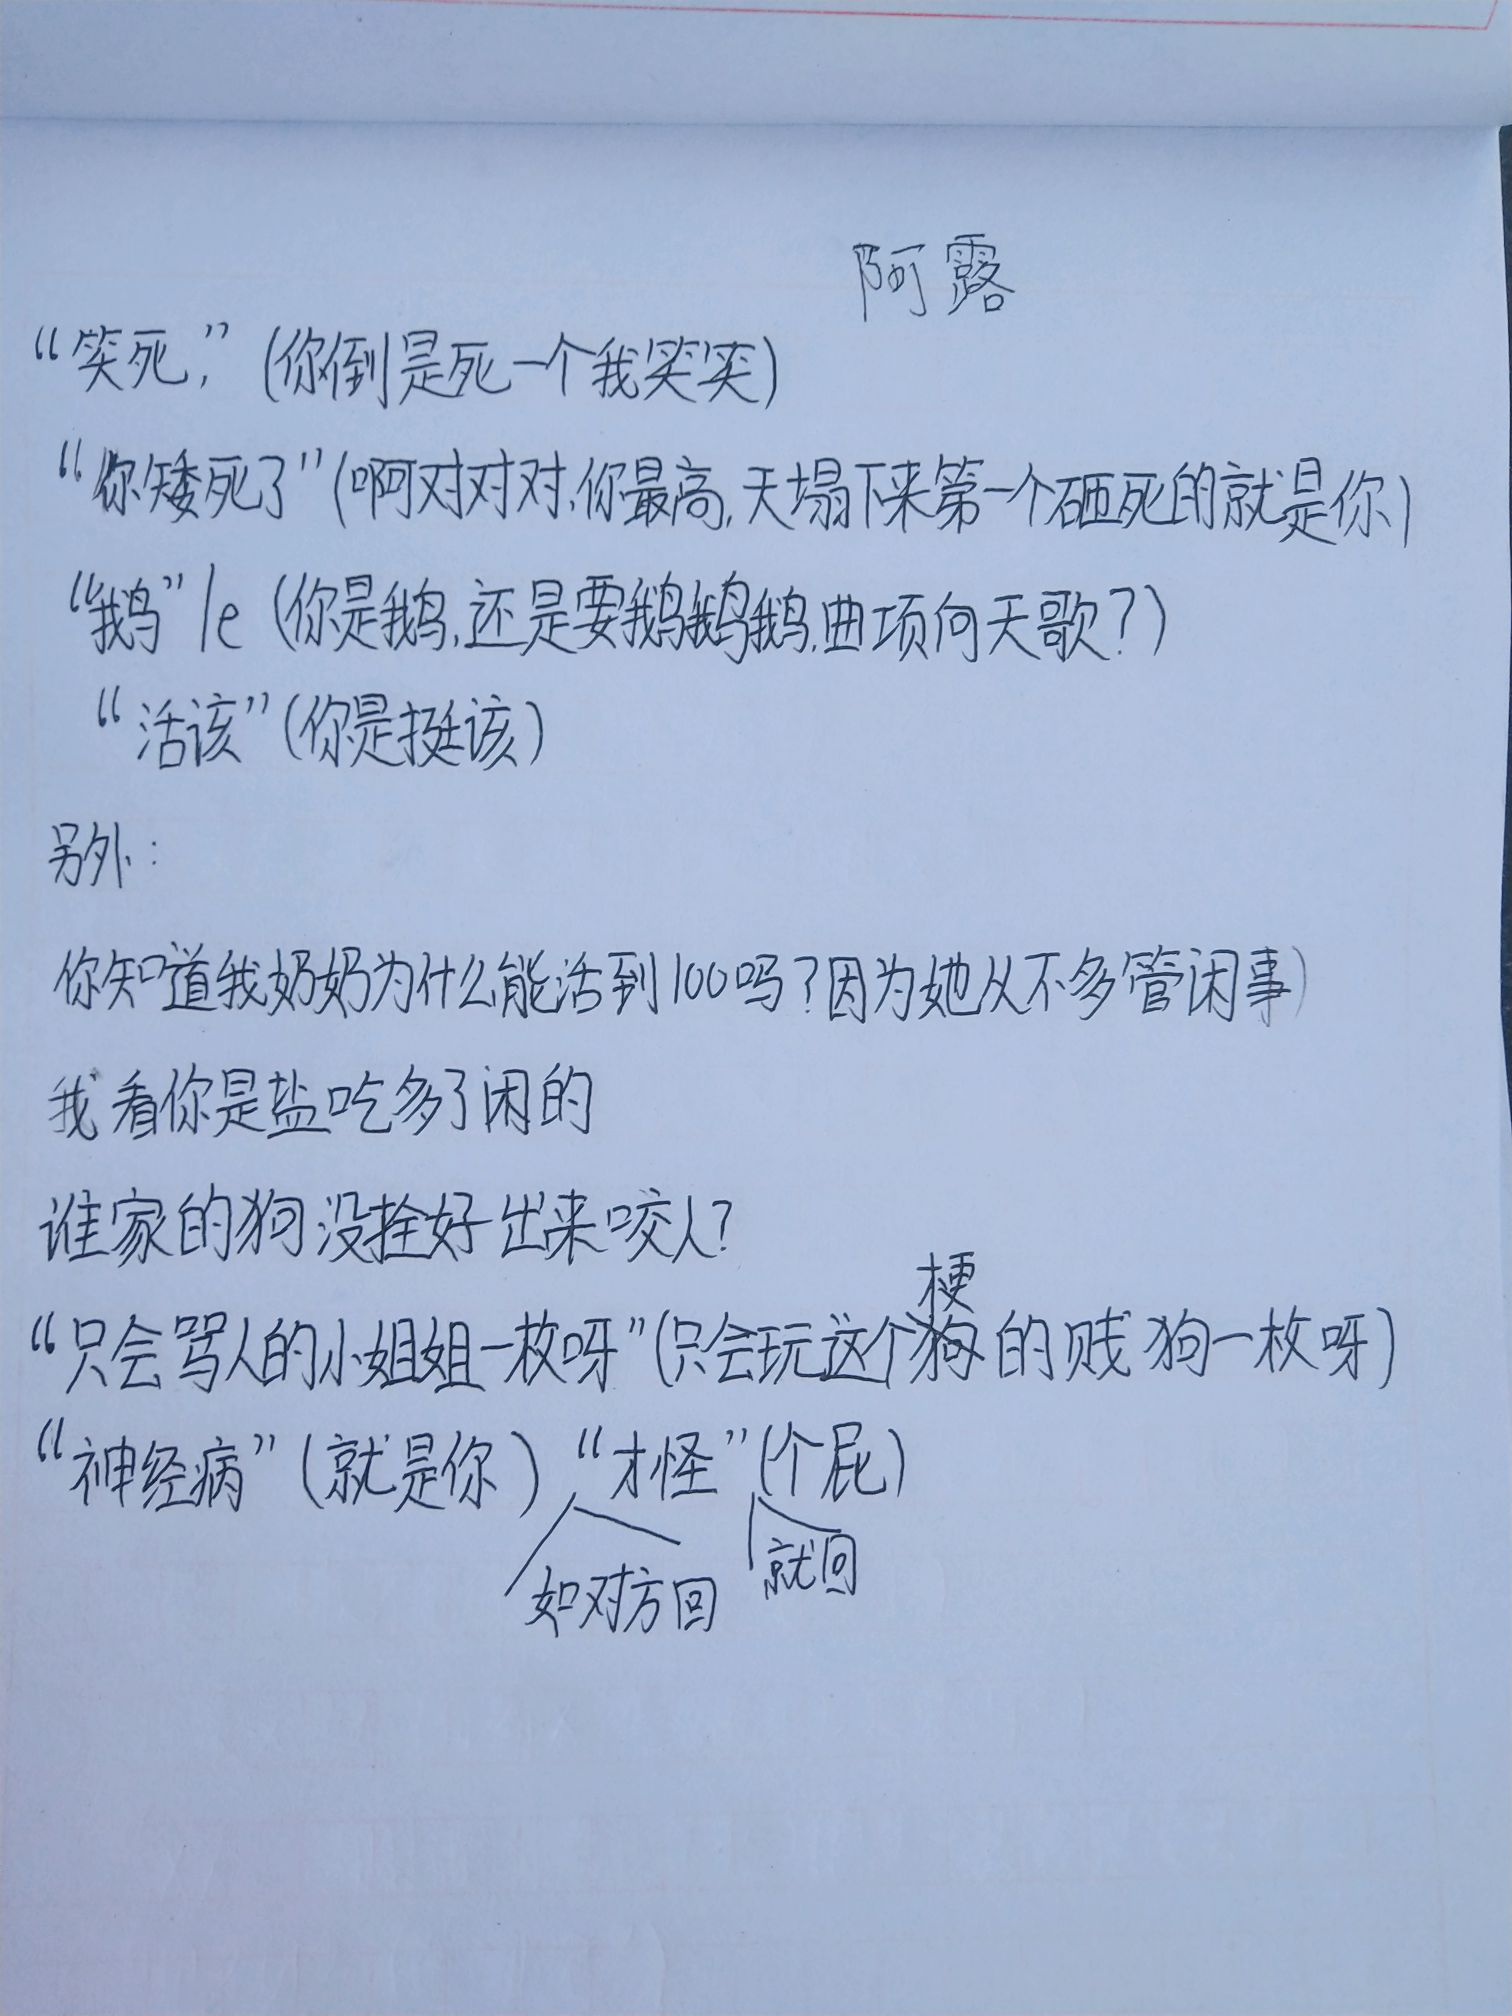 阿露
“笑死,”(你倒是死一个我笑笑)
“你矮死了”(啊对对对,你最高,天塌下来第一个砸死的就是你)
“鹅”/e(你是鹅,还是要鹅鹅鹅,曲项向天歌?)
“活该”(你是挺该)
另外:
你知道我奶奶为什么能活到100吗?因为她从不多管闲事)
我看你是盐吃多了闲的
谁家的狗没拴好出来咬人?
梗
“只会骂人的小姐姐一枚呀”(只会玩这个的贱狗一枚呀)
“神经病”(就是你)“才怪”(个屁)
如对方回 就回